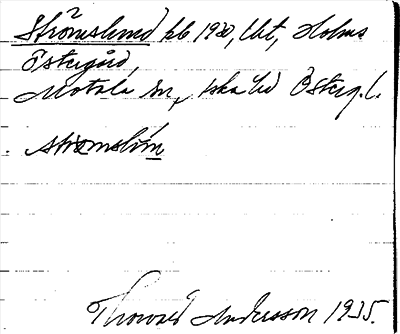 Strömslund kb 1920, lht, Holms
Östergård,
Motala sn, Aska hd Östg. l.
strömslún
Thorvald Andersson 1935.